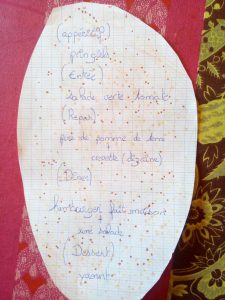 (appéritif)
pringels
(Entrée)
salade verte tomate
(Repas)
puré de pomme de terre
cervette (dizaine)
(Dîner)
hamburger fait maison
+
une salade
(Dessert)
yaourt